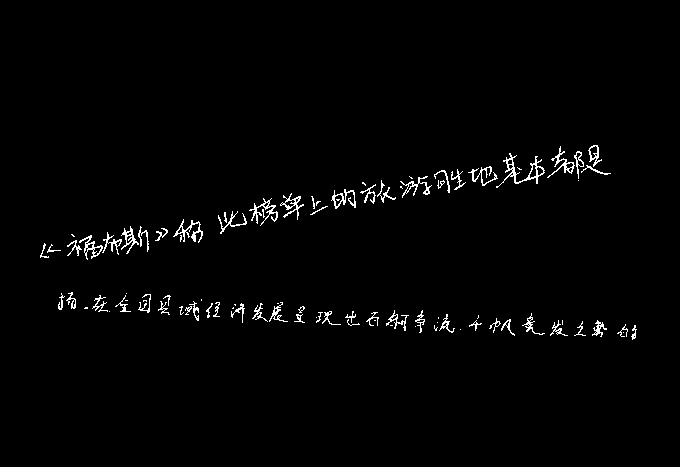 《福布斯》称 此榜单上的旅游胜地基本都是
指.在全国县域经济发展呈现出百舸争流.千帆竞发之势的